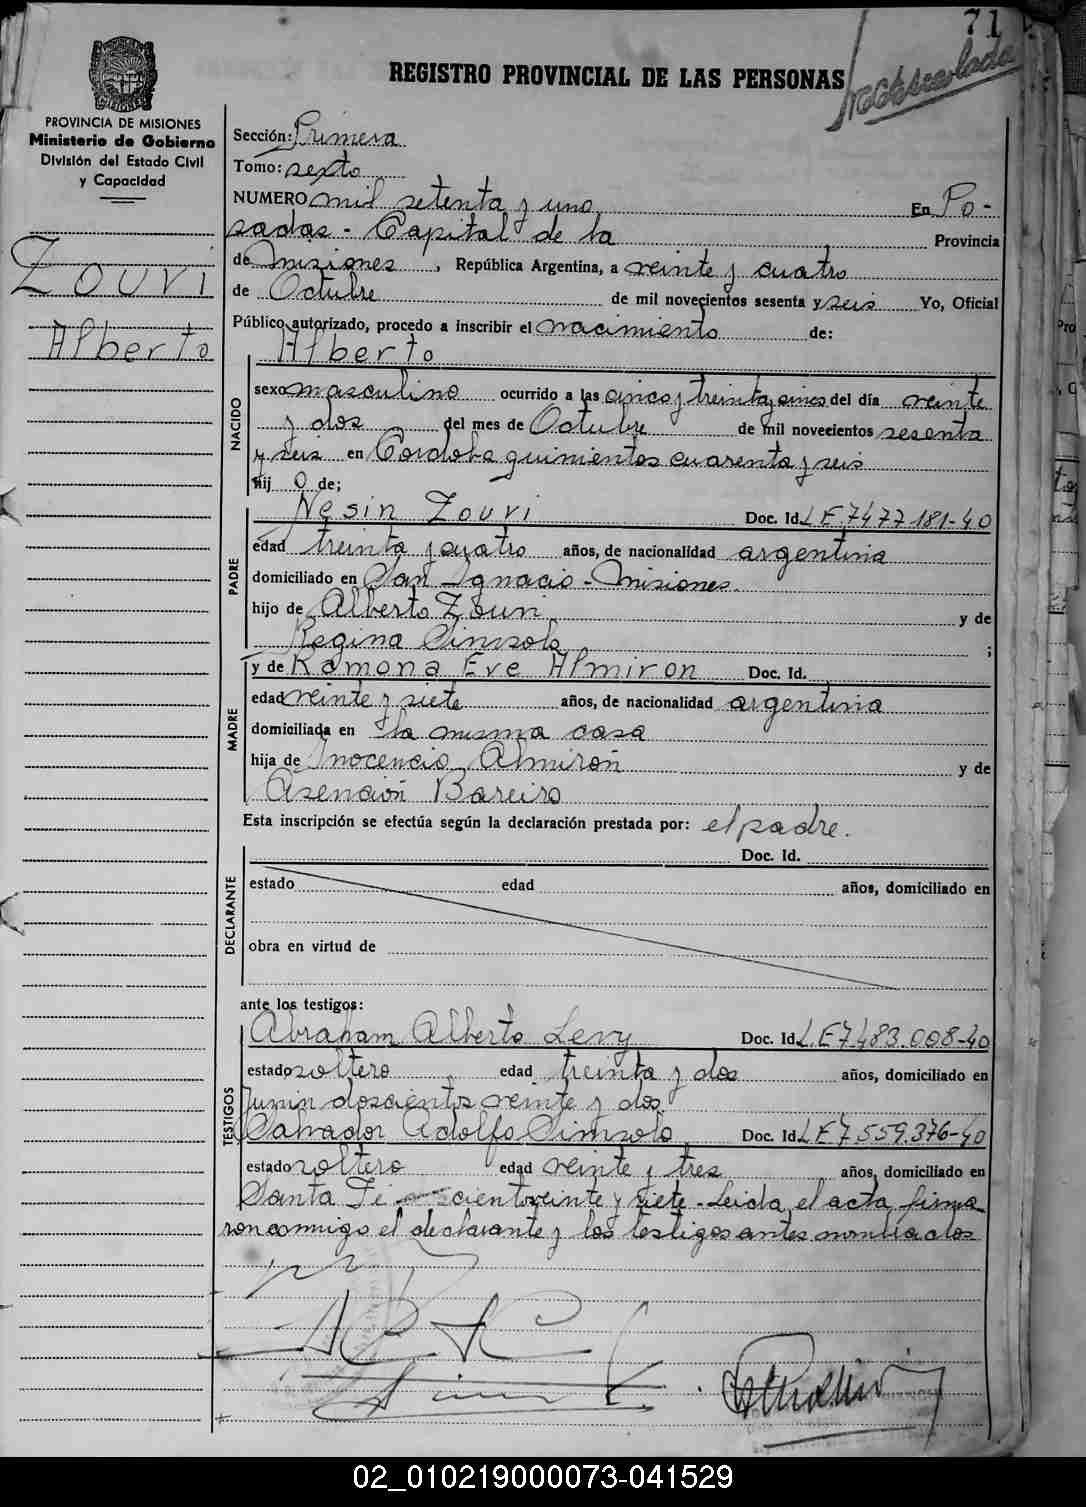 71
REGISTRO PROVINCIAL DE LAS PERSONAS
PROVINCIA DE MISIONES
Ministerio de Gobierno
División del Estado Civil
y Capacidad
ZOUVI
Alberto
Sección: Primera
Tomo: sexto
NUMERO mil setenta y uno En Po-
sadas - Capital de la Provincia
de Misiones, República Argentina, a veinte y cuatro
de Octubre de mil novecientos sesenta y seis Yo, Oficial
Público autorizado, procedo a inscribir el nacimiento de:
Alberto
NACIDO
sexo masculino ocurrido a las cinco y treinta y cinco del día veinte
y dos del mes de Octubre de mil novecientos sesenta
y seis en Cordoba quinientos cuarenta y seis
hij o de;
PADRE
Nesin Zouvi Doc. Id. L E 7477181-40
edad treinta y cuatro años, de nacionalidad argentina
domiciliado en San Ignacio - Misiones.
hijo de Alberto Zouvi y de
Regina Simsolo ;
MADRE
y de Ramona Eve Almiron Doc. Id.
edad veinte y siete años, de nacionalidad argentina
domiciliada en la misma casa
hija de Inocencio Almirón y de
Asención Bareiro
Esta inscripción se efectúa según la declaración prestada por: el padre.
DECLARANTE
Doc. Id.
estado edad años, domiciliado en
obra en virtud de
ante los testigos:
TESTIGOS
Abraham Alberto Levy Doc. Id. L.E 7.483.008-40
estado soltero edad treinta y dos años, domiciliado en
Junin doscientos veinte y dos
Salvador Adolfo Simsolo Doc. Id. L E 7.559.376-40
estado soltero edad veinte y tres años, domiciliado en
Santa Fé ciento veinte y siete - Leida el acta firma
ron conmigo el declarante y los testigos antes nombrados
02_010219000073-041529